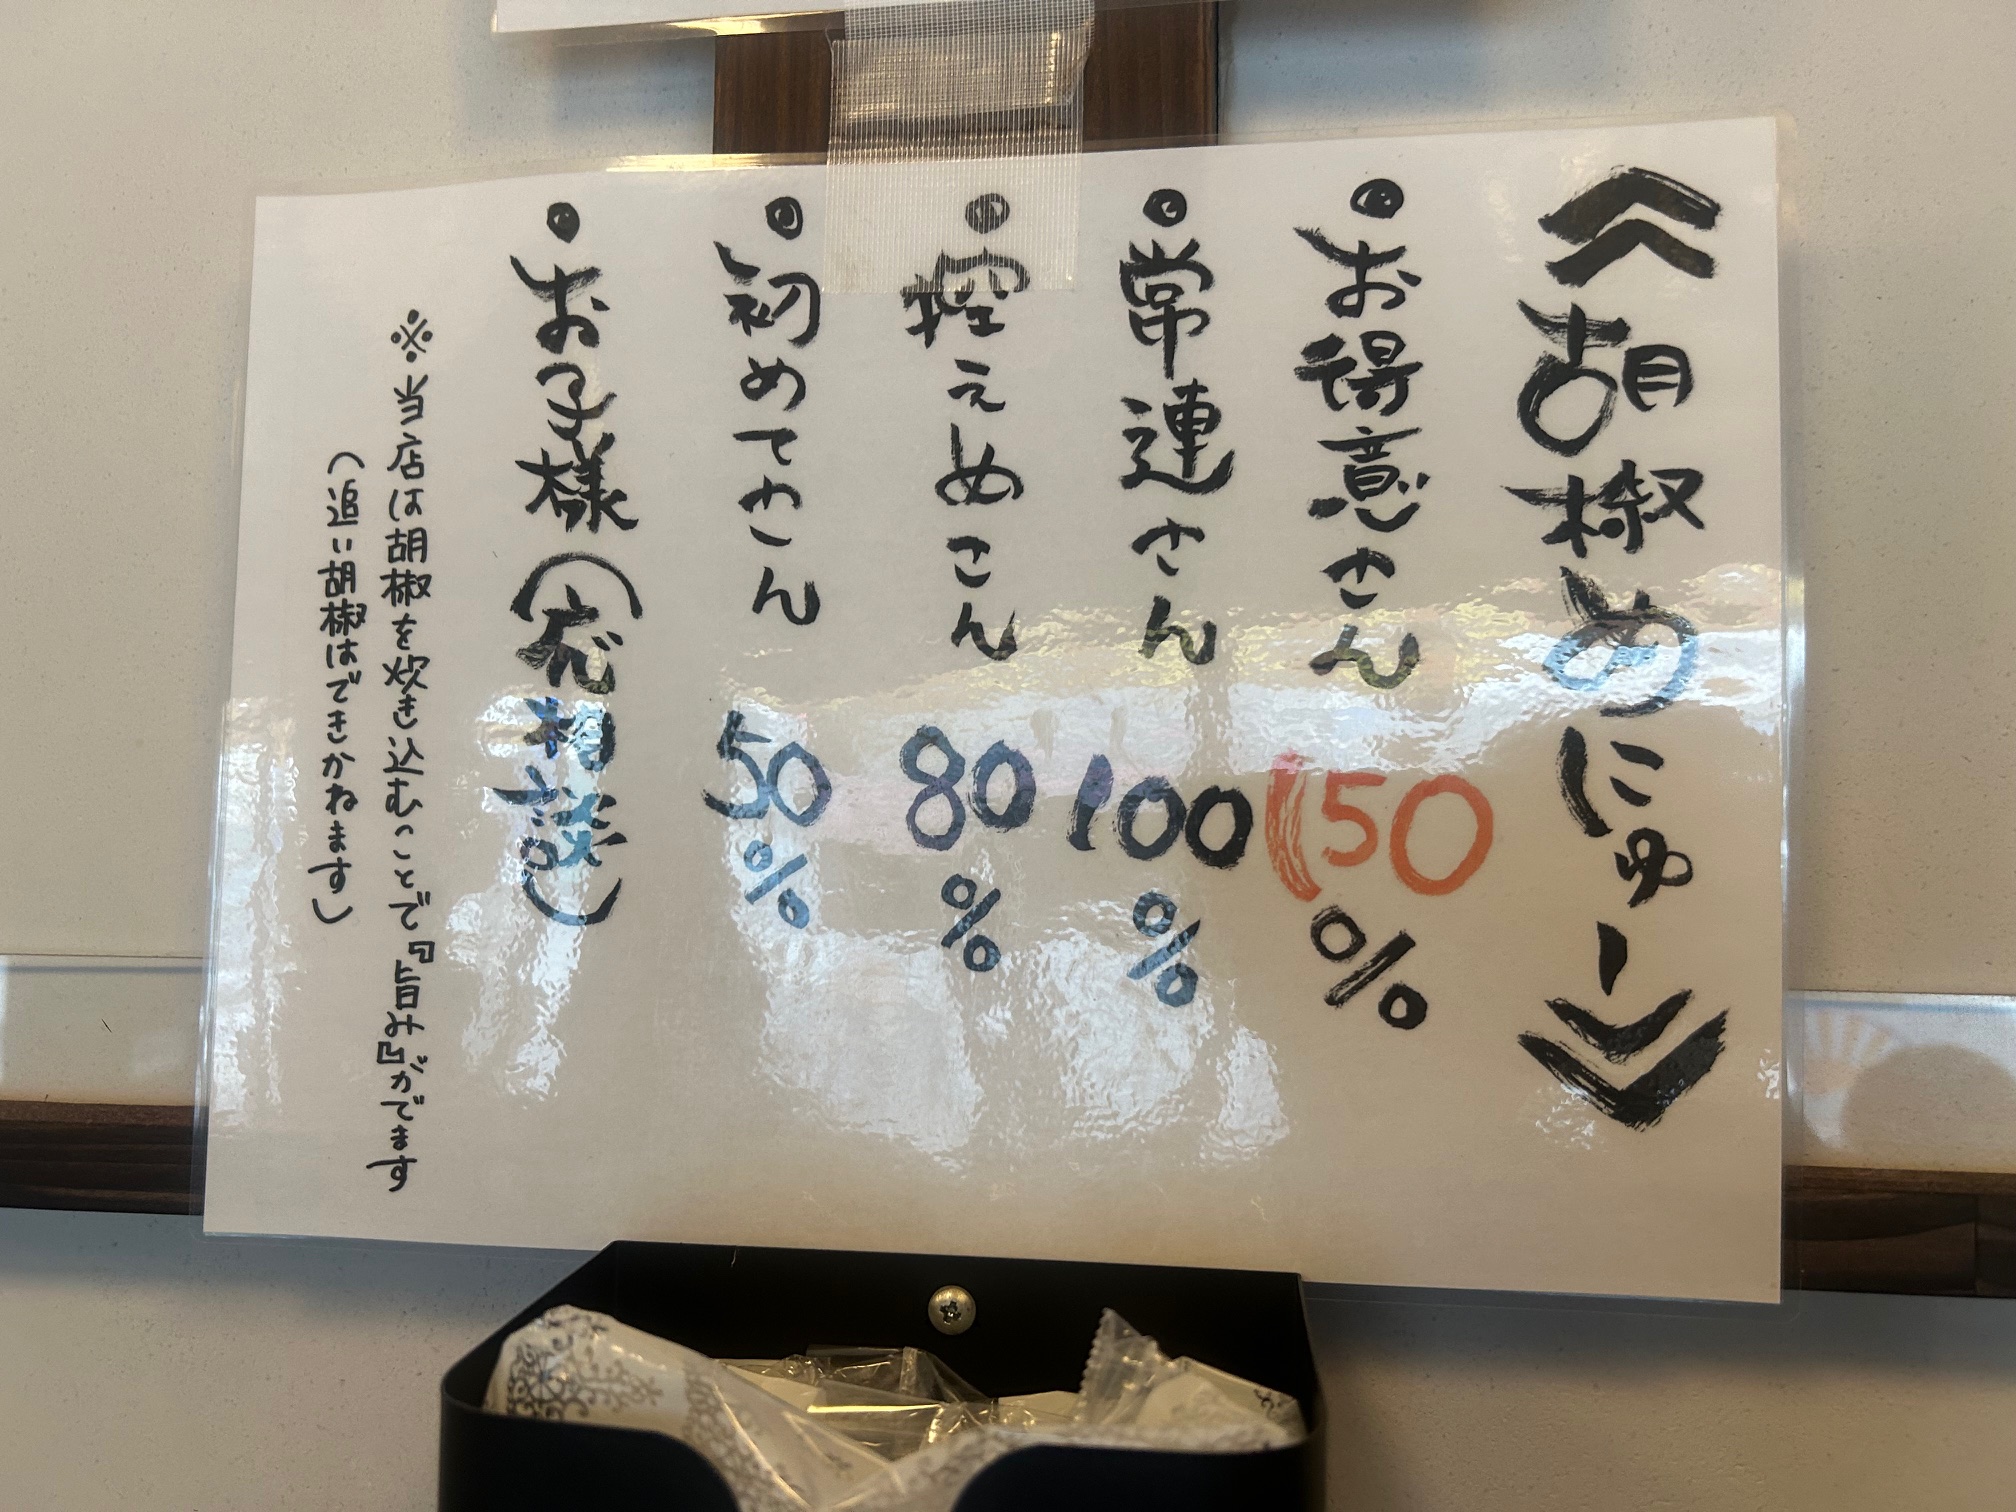 《胡椒めにゅー》
・お得意さん 150%
・常連さん 100%
・控えめさん 80%
・初めてさん 50%
・お子様(応相談)
※当店は胡椒を炊き込むことで『旨み』がでます
(追い胡椒はできかねます)